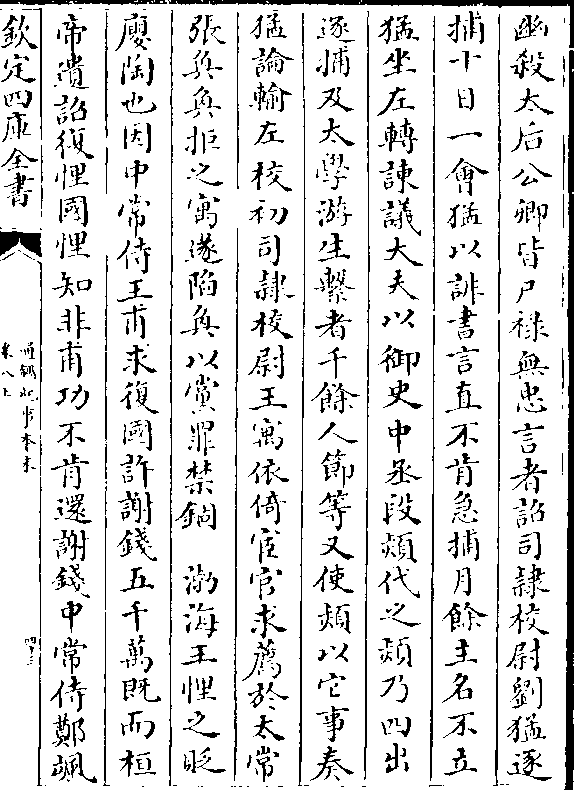 幽殺太后公卿皆尸祿無忠言者詔司隷校尉劉猛逐
捕十日一會猛以誹書言直不肯急捕月餘主名不立
猛坐左轉諫議大夫以御史中丞段熲代之熲乃四出
逐捕及太學游生繫者千餘人節等又使熲以它事奏
猛論輸左校初司隷校尉王寓依倚宦官求薦於太常
張奐奐拒之寓遂陷奐以黨罪禁錮　渤海王悝之貶
廮陶也因中常侍王甫求復國許謝錢五千萬既而桓
帝遺詔復悝國悝知非甫功不肯還謝錢中常侍鄭颯
欽定四庫全書
通鑑紀事本末
卷八上
四十三